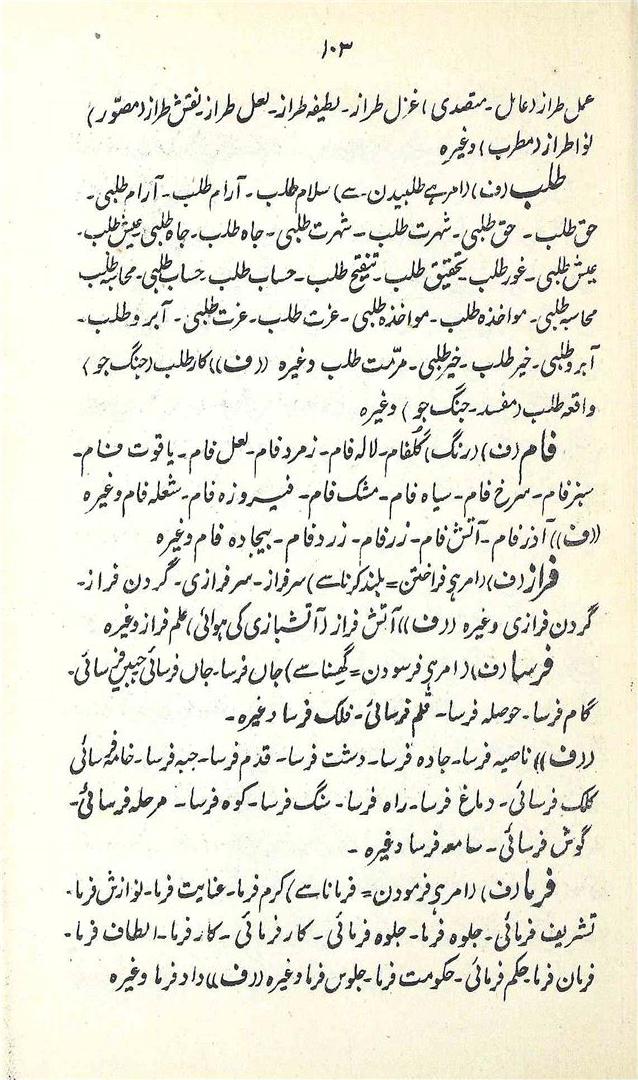 ۱۰۳
عمل طراز (عامل۔ متصدی) غزل طراز۔ لطیفہ طراز۔ لعل طراز۔ نقش طراز (مصوّر)
نوا طراز (مطرب) وغیرہ
طلب (ف) (امر ہے طلبیدن۔ سے) سلام طلب۔ آرام طلب۔ آرام طلبی۔
حق طلب۔ حق طلبی۔ شہرت طلب۔ شہرت طلبی۔ جاہ طلب۔ جاہ طلبی۔ عیش طلب۔
عیش طلبی۔ غور طلب۔ تحقیق طلب۔ تنقیح طلب۔ حساب طلب۔ حساب طلبی۔ محاسبہ طلب
محاسبہ طلبی۔ مواخذہ طلب۔ مواخذہ طلبی۔ عزت طلب۔ عزت طلبی۔ آبرو طلب۔
آبرو طلبی۔ خیر طلب۔ خیر طلبی۔ مرمّت طلب وغیرہ ((ف)) کار طلب (جنگ جو)
واقعہ طلب (مفسد۔ جنگ جو) وغیرہ
فام (ف) (رنگ) گلفام۔ لالہ فام۔ زمرد فام۔ لعل فام۔ یاقوت فام۔
سبز فام۔ سرخ فام۔ سیاہ فام۔ مشک فام۔ فیروزہ فام۔ شعلہ فام وغیرہ
((ف)) آذر فام۔ آتش فام۔ زر فام۔ زرد فام۔ بیجادہ فام وغیرہ
فراز (ف) (امر ہے فراختن = بلند کرنا سے) سرفراز۔ سرفرازی۔ گردن فراز۔
گردن فرازی وغیرہ ((ف)) آتش فراز (آتشبازی کی ہوائی) علم فراز وغیرہ
فرسا (ف) (امر ہے فرسودن = گھسنا سے) جاں فرسا۔ جاں فرسائی جبیں فرسائی۔
گام فرسا۔ حوصلہ فرسا۔ قلم فرسائی۔ فلک فرسا وغیرہ۔
((ف)) ناصیہ فرسا۔ جادہ فرسا۔ دشت فرسا۔ قدم فرسا۔ جبہ فرسا۔ خامہ فرسائی
کلک فرسائی۔ دماغ فرسا۔ راہ فرسا۔ سنگ فرسا۔ کوہ فرسا۔ مرحلہ فرسائی۔
گوش فرسائی۔ سامعہ فرسا وغیرہ۔
فرما (ف) (امر ہے فرمودن = فرمانا سے) کرم فرما۔ عنایت فرما۔ نوازش فرما۔
تشریف فرمائی۔ جلوہ فرما۔ جلوہ فرمائی۔ کار فرمائی۔ کار فرما۔ الطاف فرما۔
فرمان فرما۔ حکم فرمائی۔ حکومت فرما۔ جلوس فرما وغیرہ ((ف)) داد فرما وغیرہ